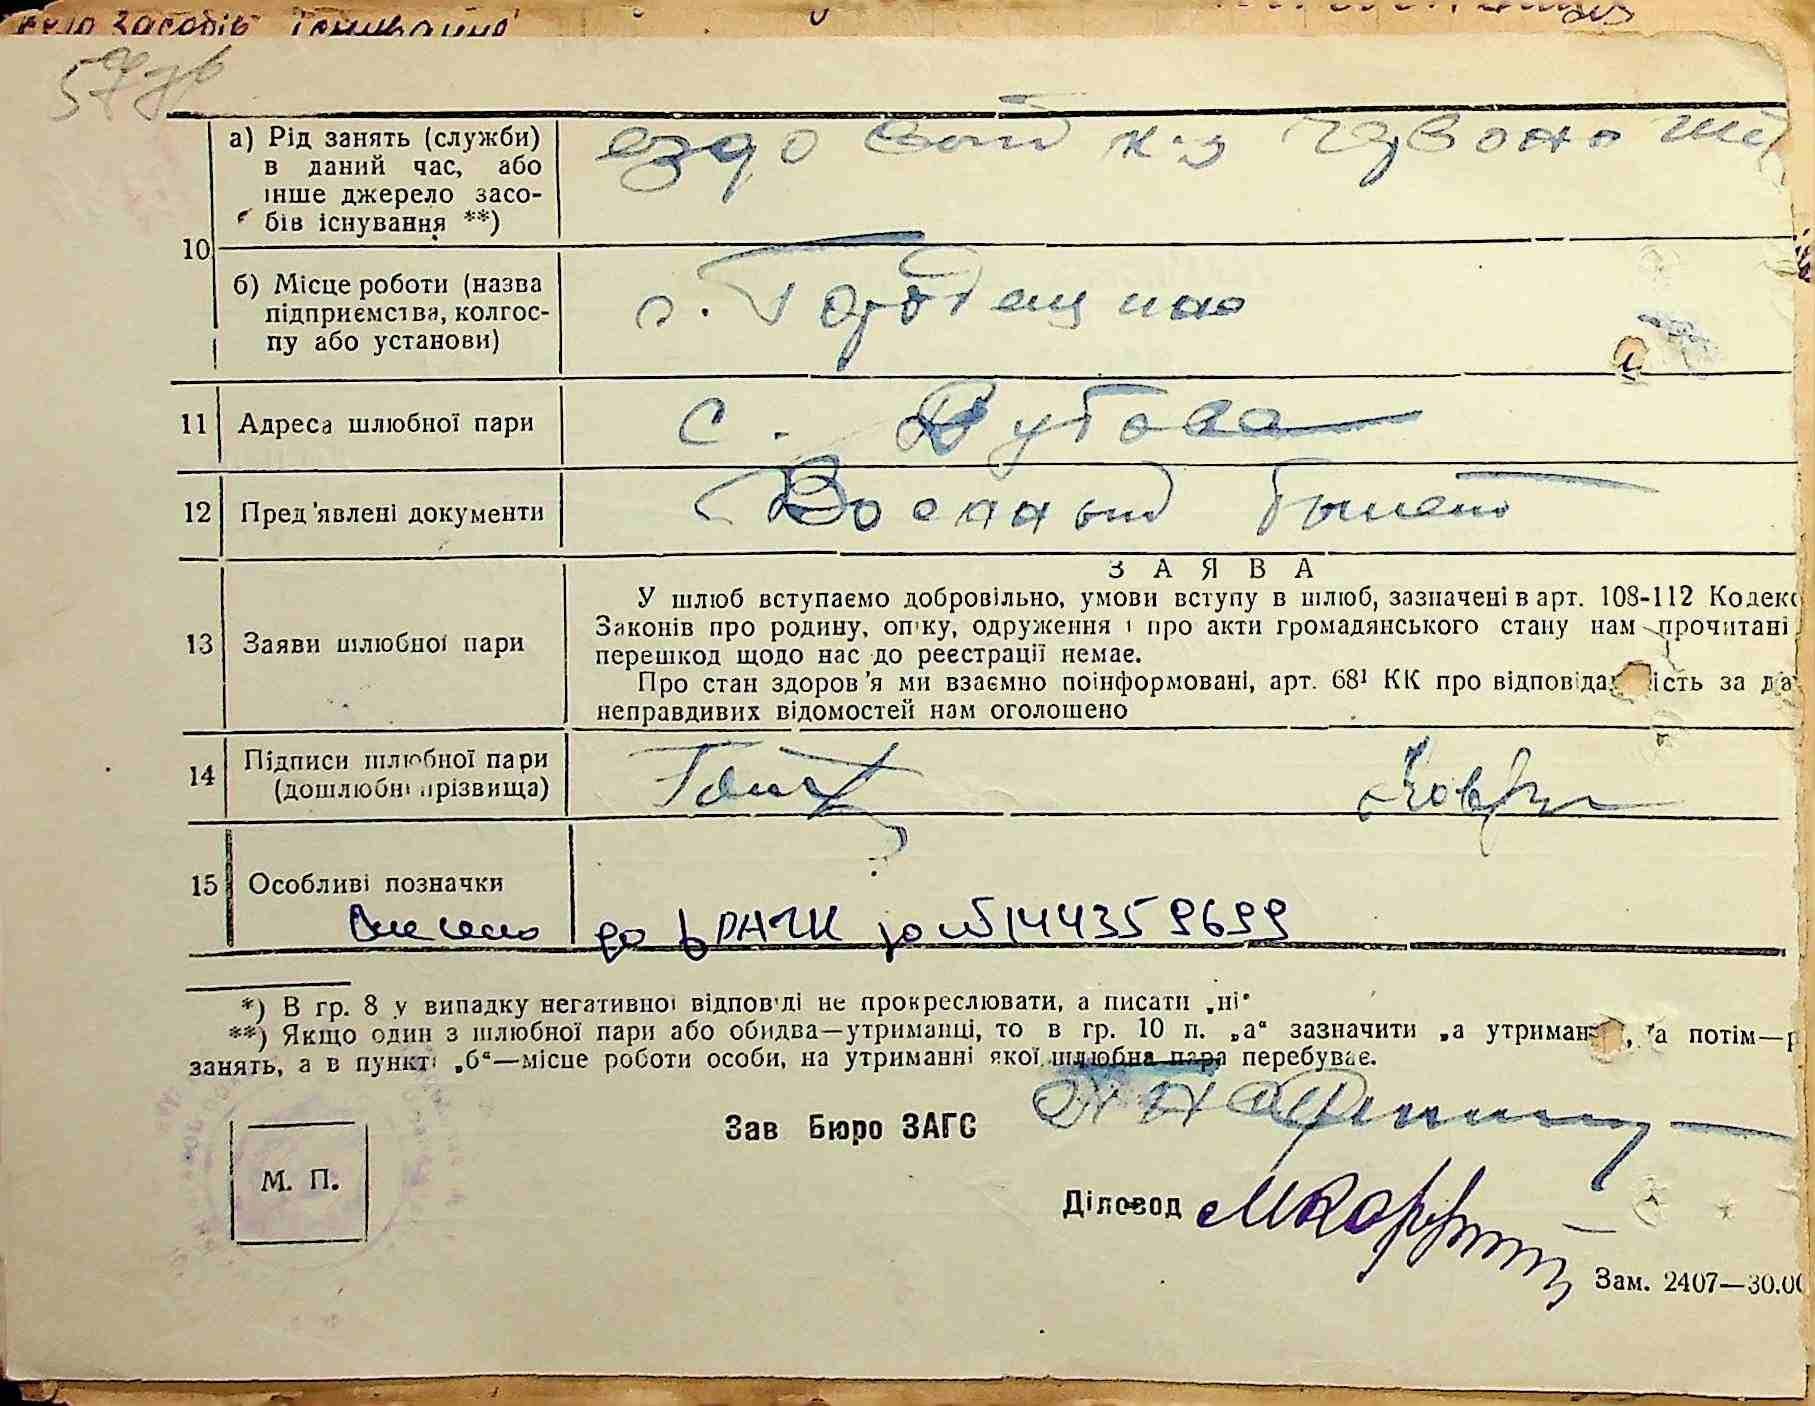 засобів існування
а) Рід занять (служби)
в даний час, або
інше джерело засо-
бів існування **)
ездовой к-з Червоно
10
б) Місце роботи (назва
підприємства, колгос-
пу або установи)
с.
11 Адреса шлюбної пари
с.
12 Пред'явлені документи
Военный билет
З А Я В А
13 Заяви шлюбної пари
У шлюб вступаємо добровільно, умови вступу в шлюб, зазначені в арт. 108-112 Кодекс
Законів про родину, опіку, одруження і про акти громадянського стану нам прочитані
перешкод щодо нас до реєстрації немає.
Про стан здоров'я ми взаємно поінформовані, арт. 68¹ КК про відповідальність за да
неправдивих відомостей нам оголошено
14 Підписи шлюбної пари
(дошлюбні прізвища)
15 Особливі позначки
Внесено до ДРАЦСГ за № 144359699
*) В гр. 8 у випадку негативної відповіді не прокреслювати, а писати „ні“
**) Якщо один з шлюбної пари або обидва—утриманці, то в гр. 10 п. „а“ зазначити „а утриман , а потім—р
занять, а в пункті „б“—місце роботи особи, на утриманні якої шлюбна пара перебуває.
Зав Бюро ЗАГС
М. П.
Діловод
Зам. 2407—30.00